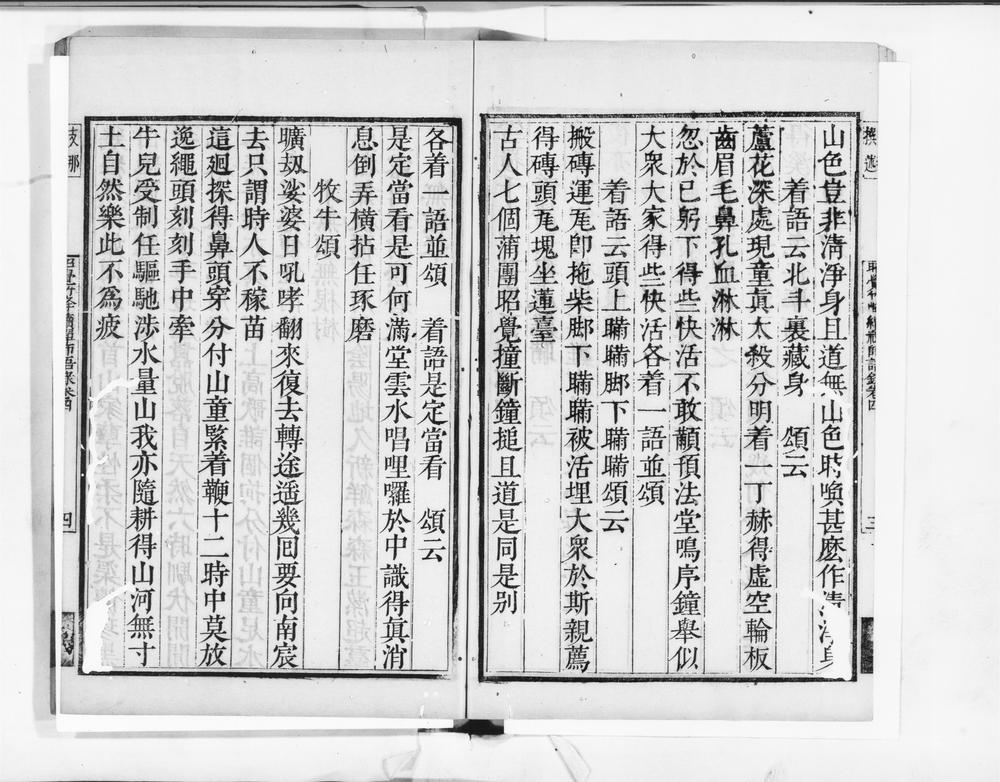 山色豈非清淨身且道無山色時喚甚麽作清淨身
着語云北斗裏藏身　頌云
蘆花深處現童真太殺分明着一丁赫得虛空輪板
齒眉毛鼻孔血淋淋
忽於已躬下得些快活不敢顢頇法堂鳴序鐘舉似
大衆大家得些快活各着一語並頌
着語云頭上暪暪脚下暪暪頌云
搬磚運𤬦卽拖柴脚下暪暪被活埋大衆於斯親薦
得磚頭𤬦塊坐蓮臺
古人七個蒲團昭覺撞斷鐘搥且道是同是别
各着一語並頌　着語是定當看　頌云
是定當看是可何滿堂雲水唱哩囉於中識得眞消
息倒弄橫拈任琢磨
牧牛頌
曠刼娑婆日吼哮翻來復去轉途遥幾囘要向南宸
去只謂時人不稼苗
這廻探得鼻頭穿分付山童緊着鞭十二時中莫放
逸繩頭刻刻手中牽
牛兒受制任驅馳涉水量山我亦隨耕得山河無寸
土自然樂此不為疲
四